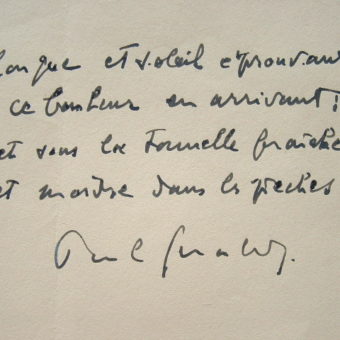 longue et soleil éprouvant
ce bonheur en arrivant :
et sous la tonnelle fraîche
et mordre dans les pêches